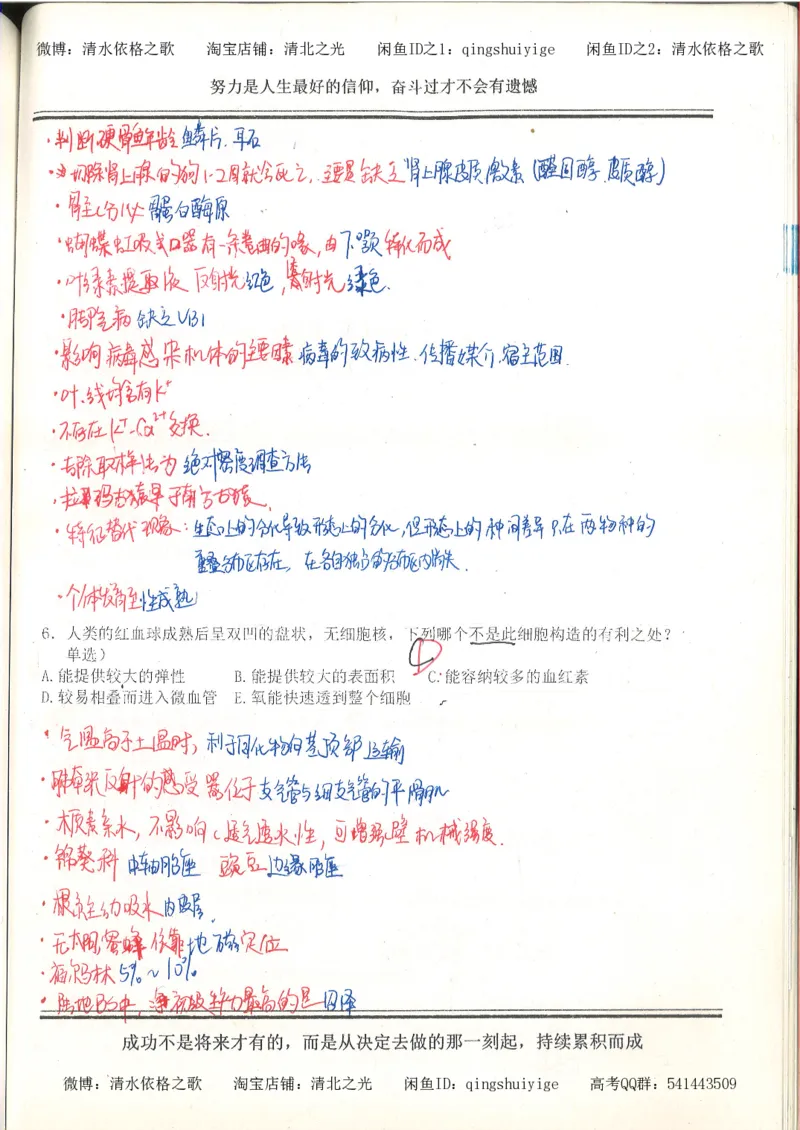 微博：清水依格之歌 淘宝店铺：清北之光 闲鱼ID之1：qingshuiyige 闲鱼ID之2：清水依格之歌
努力是人生最好的信仰，奋斗过才不会有遗憾
·判断硬骨鱼年龄 鳞片、耳石
·切除肾上腺的狗1-2周就会死亡，主要是缺乏肾上腺皮质激素（醛固酮、皮质醇）
·胃主C分泌 胃蛋白酶原
·蝴蝶虹吸式口器有一条卷曲的喙，由下颚特化而成
·叶绿素提取液 反射光红色，透射光绿色.
·脚气病 缺乏VB1
·影响病毒感染机体的主要因素 病毒的致病性、传播媒介、宿主范围.
·叶、线均含有K⁺
·不存在K⁺-Ca²⁺交换.
·去除取样法为 绝对密度调查方法
·拉玛古猿早于南方古猿.
·特征替代现象：生态上的分化导致形态上的分化，但形态上的种间差异只在两物种的
重叠分布区存在，在各自独立的分布区内消失.
·个体发育至性成熟
6．人类的红血球成熟后呈双凹的盘状，无细胞核，下列哪个不是此细胞构造的有利之处？
单选） D
A.能提供较大的弹性 B.能提供较大的表面积 C.能容纳较多的血红素
D.较易相叠而进入微血管 E.氧能快速透到整个细胞
·气温高于土温时，利于同化物向茎顶部运输
·肺牵张反射的感受器位于支气管与细支气管的平滑肌
·木质素亲水，不影响C透气透水性，可增强壁机械强度.
·锦葵科 中轴胎座 豌豆 边缘胎座
·根负主动吸水 内皮层.
·无太阳，蜜蜂依靠地磁定位
·福 林 5%~10%
·陆地 中，净初级 力最高的是 沼泽
成功不是将来才有的，而是从决定去做的那一刻起，持续累积而成
微博：清水依格之歌 淘宝店铺：清北之光 闲鱼ID：qingshuiyige 高考QQ群：541443509